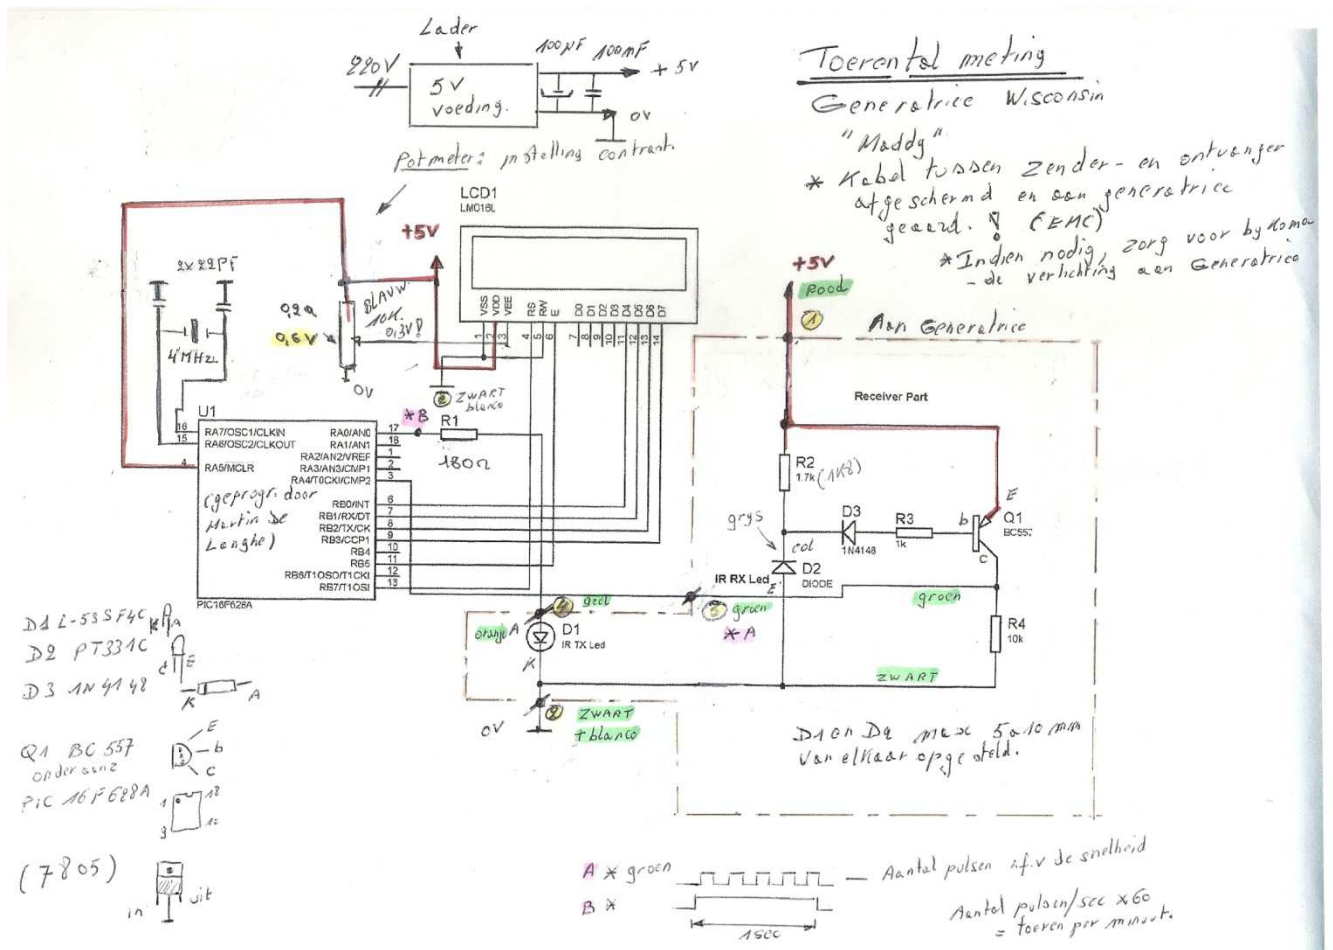 Lader
220V
5V
voeding.
100µF 100mF
+ 5V
0V
Potmeter: instelling contrast.
Toerental meting
Generatrice Wisconsin
"Maddy"
* Kabel tussen Zender- en ontvanger
afgeschermd en aan generatrice
geaard. ! (EMC)
* Indien nodig, zorg voor bykomen
-de verlichting aan Generatrice
LCD1
LM016L
+5V
2x22PF
4MHz
0,6V
BLAUW
10K
0,3V!
0V
VSS
VDD
VEE
RS
RW
E
D0
D1
D2
D3
D4
D5
D6
D7
1 2 3 4 5 6 7 8 9 10 11 12 13 14
2 ZWART
blanco
+5V
Rood
1
Aan Generatrice
Receiver Part
U1
16 RA7/OSC1/CLKIN
15 RA6/OSC2/CLKOUT
4 RA5/MCLR
RA0/AN0 17
RA1/AN1 18
RA2/AN2/VREF 1
RA3/AN3/CMP1 2
RA4/T0CKI/CMP2 3
RB0/INT 6
RB1/RX/DT 7
RB2/TX/CK 8
RB3/CCP1 9
RB4 10
RB5 11
RB6/T1OSO/T1CKI 12
RB7/T1OSI 13
(geprogr. door
Martin De
Langhe)
PIC16F628A
*B
R1
180Ω
R2
1.7k (1K8)
grys
D3
1N4148
R3
1k
b
E
C
Q1
BC557
col
D2
DIODE
E
IR RX Led
groen
3 groen
*A
R4
10k
ZWART
4 geel
oranje A
D1
IR TX Led
K
2 ZWART
+ blanco
0V
D1 en D2 max 5 à 10 mm
van elkaar opgesteld.
D1 L-53SF4C K A
D2 PT331C C E
D3 1N4148 K A
Q1 BC 557 E
b
C
onderaanz
PIC 16F628A 1 18
9 10
(7805)
in uit
A * groen
Aantal pulsen i.f.v de snelheid
B *
1sec
Aantal pulsen/sec x60
= toeren per minuut.